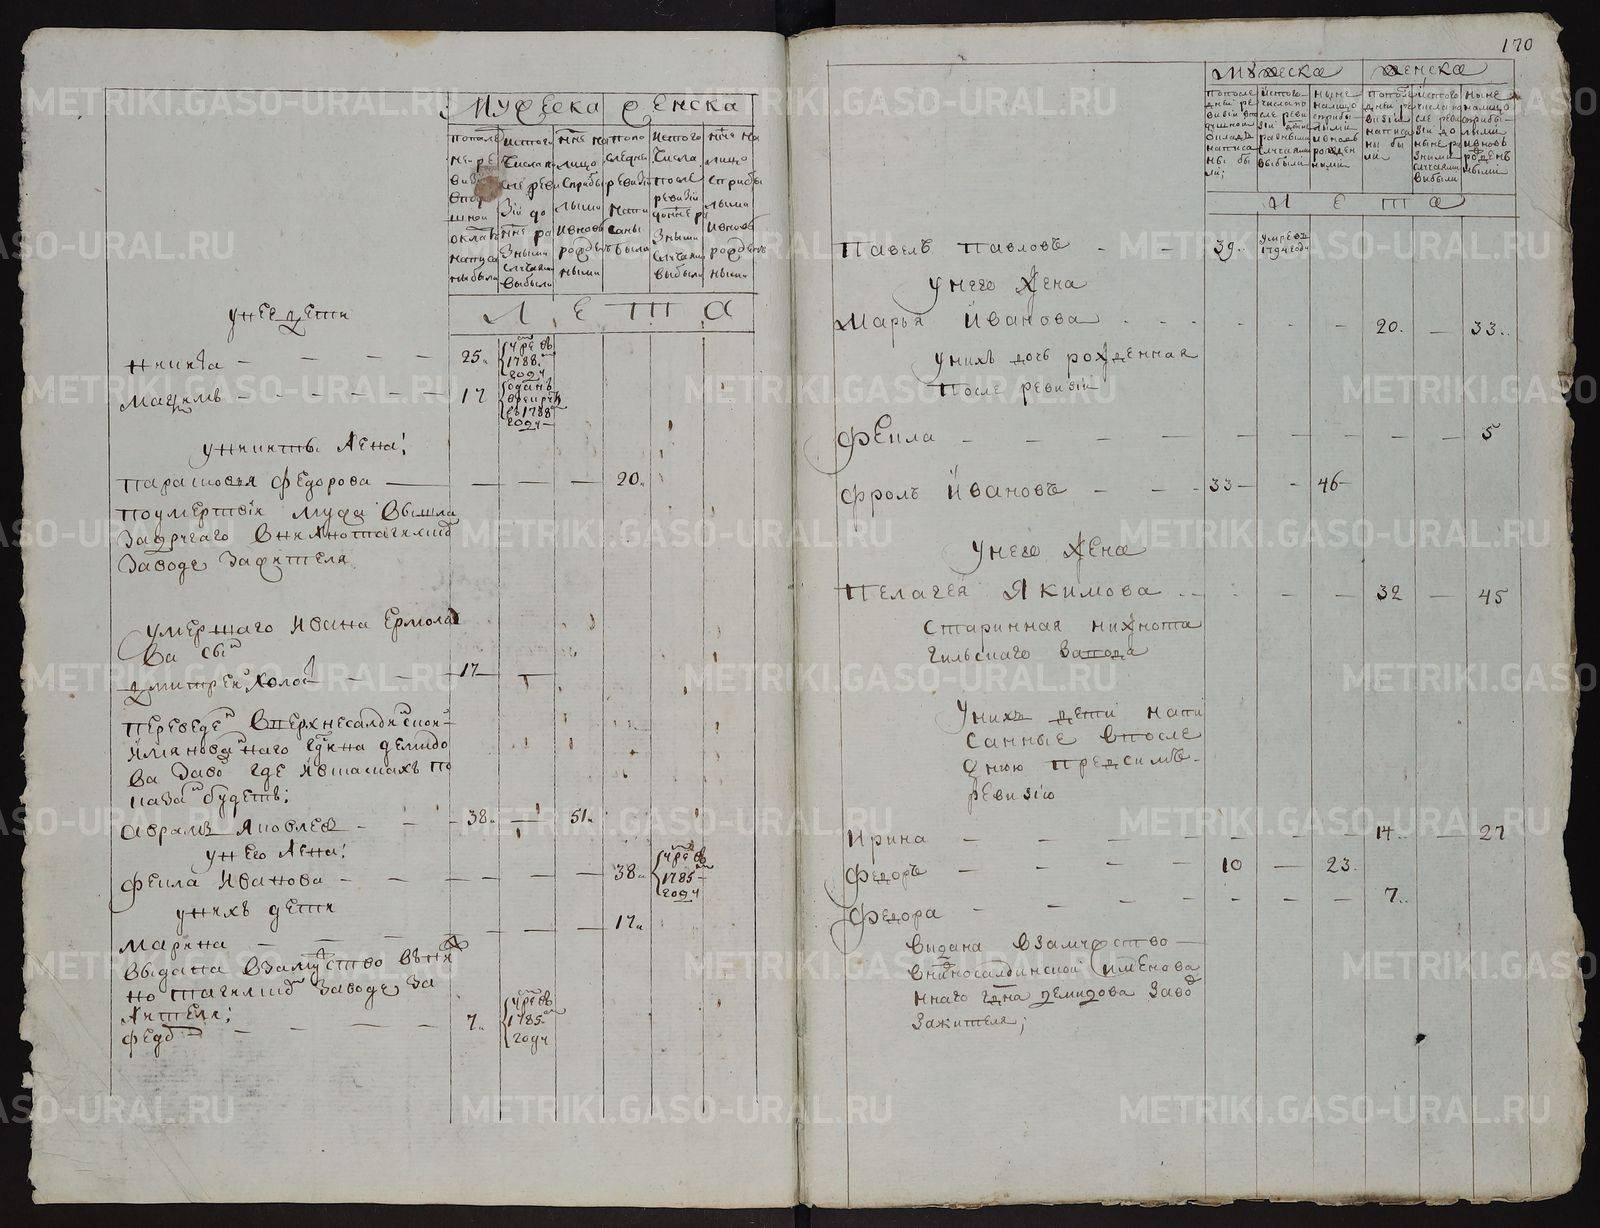 мужеска женска
попослѣ
ней ре
визiи
вподу
шной
окладъ
написа
ны были
истого
числа по
сле реви
зiи до
ныне ра
зными
случаями
выбыли
ныне на
лицо
сприбы
лыми
ивновь
рожден
ными
попо
следней
ревизiи
напи
саны
были
истого
числа
после
ревизiи
доныне ра
зными
случаями
выбыли
ныне на
лицо
сприбы
лыми
ивновь
рожден
ными
л е т а
унее дети
никита — — — — 25.
умре въ
1788.
году
максимъ — — — — — 17
отданъ
врекруты
въ 1788
году
уникиты жена:
парасковья федорова — — — — 20.
поумертвiи мужа вышла
задругаго внижнотагилской
заводе зажителя
умершаго ивана ермола
ва сын
дмитрей холост — — — 17 —
переведен вверхнесалдинской
имянованнаго гдна демидо
ва завод где ившатахъ по
казан будетъ:
аврамъ яковлев — — — 38. — 51.
унего жена:
фекла иванова — — — — — — 38.
умре въ
1785
году
унихъ дети
марина — — — — — — — 17.
выдана взамуство вниж
но тагилской заводе за
жителя;
федор — — — — 7.
умре въ
1785
году
170
мужеска женска
попосле
дней ре
визiи впо
душной
окладъ
написа
ны бы
ли;
истого
числа по
сле реви
зiи доны
разными
случаями
выбыли
ныне
налицо
сприбы
лыми
ивновь
рожден
ными
попосле
дней ре
визiи
написа
ны бы
ли
истого
числа по
сле реви
зiи до
ныне ра
зными
случаями
выбыли
ныне
налицо
сприбы
лыми
ивновь
рожденъ
ными
л е т а
Павелъ павловъ — — 39..
умре въ
1794 году
унего жена
Марья Иванова 20. — 33..
унихъ дочь рожденная
после ревизiи
Фекла — — — — — — — — — — 5
Фролъ Ивановъ — — — 33 — — 46 —
унего жена
Пелагея Якимова 32 — 45
старинная нижнота
гильскаго завода
унихъ дети напи
санные впосле
днюю предсимъ
ревизiю
Ирина — — — — — — — — 14.. — 27
Федоръ — — — — — 10 — 23.
Федора — — — — — — — — 7..
выдана взамужство —
внижносалдинской имянова
ннаго гдна демидова завод
зажителя;
METRIKI.GASO-URAL.RU